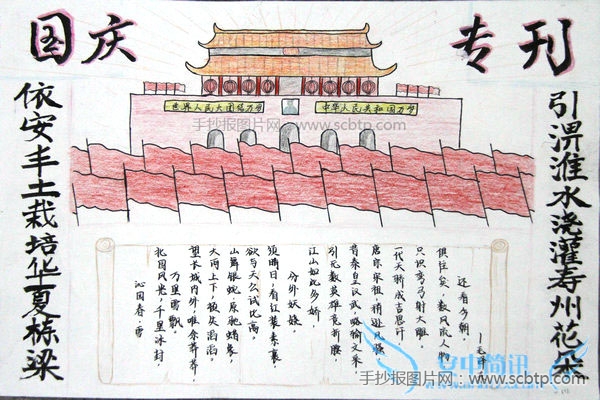 国庆
专刊
世界人民大团结万岁
中华人民共和国万岁
手抄报图片网 - www.scbtp.com
依安丰土栽培华夏栋梁
引淠淮水浇灌寿州花朵
沁园春·雪
北国风光，千里冰封，
万里雪飘。
望长城内外，唯余莽莽，
大河上下，顿失滔滔。
山舞银蛇，原驰蜡象，
欲与天公试比高。
须晴日，看红装素裹，
分外妖娆
江山如此多娇，
引无数英雄竞折腰
昔秦皇汉武，略输文采，
唐宗宋祖，稍逊风骚，
一代天骄成吉思汗，
只识弯弓射大雕，
俱往矣，数风流人物
还看今朝。
安中简讯
手抄报图片网 - www.scbtp.com